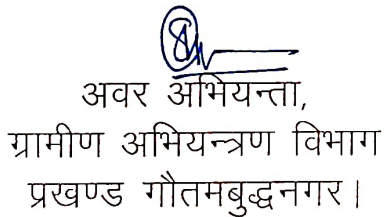 अवर अभियन्ता,
ग्रामीण अभियन्त्रण विभाग
प्रखण्ड गौतमबुद्धनगर।